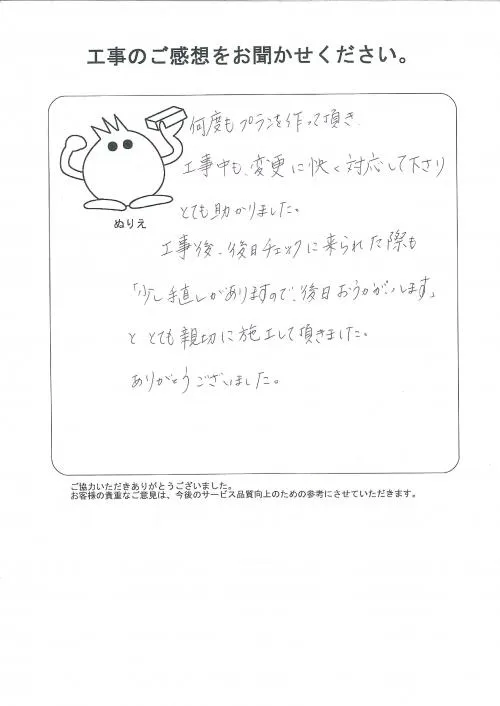 工事のご感想をお聞かせください。
何度もプランを作って頂き、
工事中も、変更に快く対応して下さり
とても助かりました。
ぬりえ
工事後、後日チェックに来られた際も
「少し手直しがありますので、後日おうかがいします」
と とても親切に施工して頂きました。
ありがとうございました。
ご協力いただきありがとうございました。
お客様の貴重なご意見は、今後のサービス品質向上のための参考にさせていただきます。